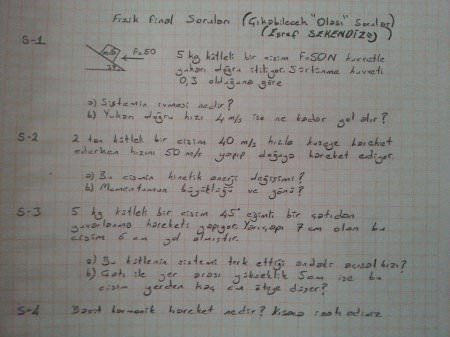 Fizik Final Soruları (Çıkabilecek "Olası" Sorular)
(Israf SEKENDİZ)
S-1
F=50
5 kg kütleli bir cisim F=50N kuvvetle
yukarı doğru itiliyor. Sürtünme kuvveti
0,3 olduğuna göre
a) Sistemin ivmesi nedir?
b) Yukarı doğru hızı 4 m/s ise ne kadar yol alır?
S-2 2 ton kütleli bir cisim 40 m/s hızla kuzeye hareket
ederken hızını 50 m/s yapıp doğuya hareket ediyor.
a) Bu cismin kinetik enerji değişimi?
b) Momentumun büyüklüğü ve yönü?
S-3 5 kg kütleli bir cisim 45° eğimli bir çatıdan
yuvarlanma hareketi yapıyor. Yarıçapı 7 cm olan bu
cisim 6 cm yol almıştır.
a) Bu kütlenin sistemi terk ettiği andaki açısal hızı?
b) Çatı ile yer arası yükseklik 5 cm ise bu
cisim yerden kaç cm öteye düşer?
S-4 Basit harmonik hareket nedir? Kısaca izah ediniz